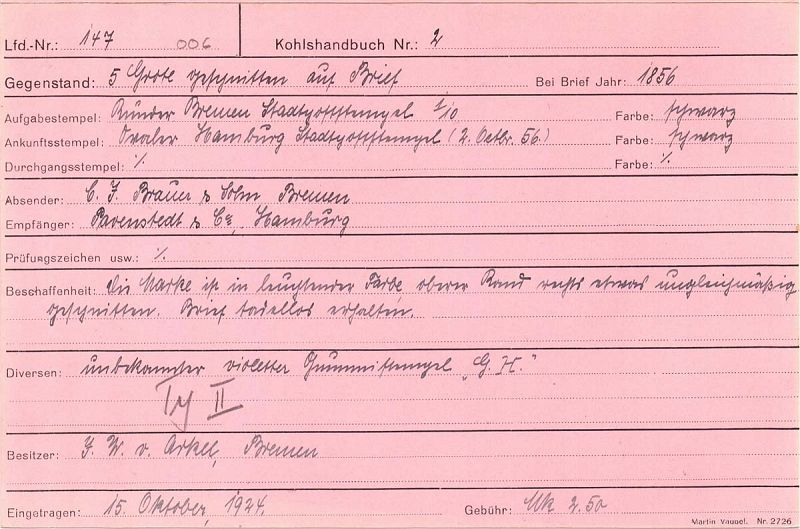 Lfd.-Nr.: 147 006 Kohlshandbuch Nr.: 2
Gegenstand: 5 Grote geschnitten auf Brief Bei Brief Jahr: 1856
Aufgabestempel: Runder Bremen Stadtpoststempel 1/10 Farbe: schwarz
Ankunftsstempel: Ovaler Hamburg Stadtpoststempel (2. Octbr. 56.) Farbe: schwarz
Durchgangsstempel: ./. Farbe: ./.
Absender: C. F. Brauer & Sohn Bremen
Empfänger: Pavenstedt & Co, Hamburg
Prüfungszeichen usw.: ./.
Beschaffenheit: Die Marke ist in leuchtender Farbe oberer Rand rechts etwas ungleichmäßig
geschnitten. Brief tadellos erhalten.
Diversen: unbekannter violetter Gummistempel „G. H."
Ty II
Besitzer: F. W. v. Arkel, Bremen
Eingetragen: 15. Oktober, 1924. Gebühr: Mk 2.50
Martin Vaupel. Nr. 2726